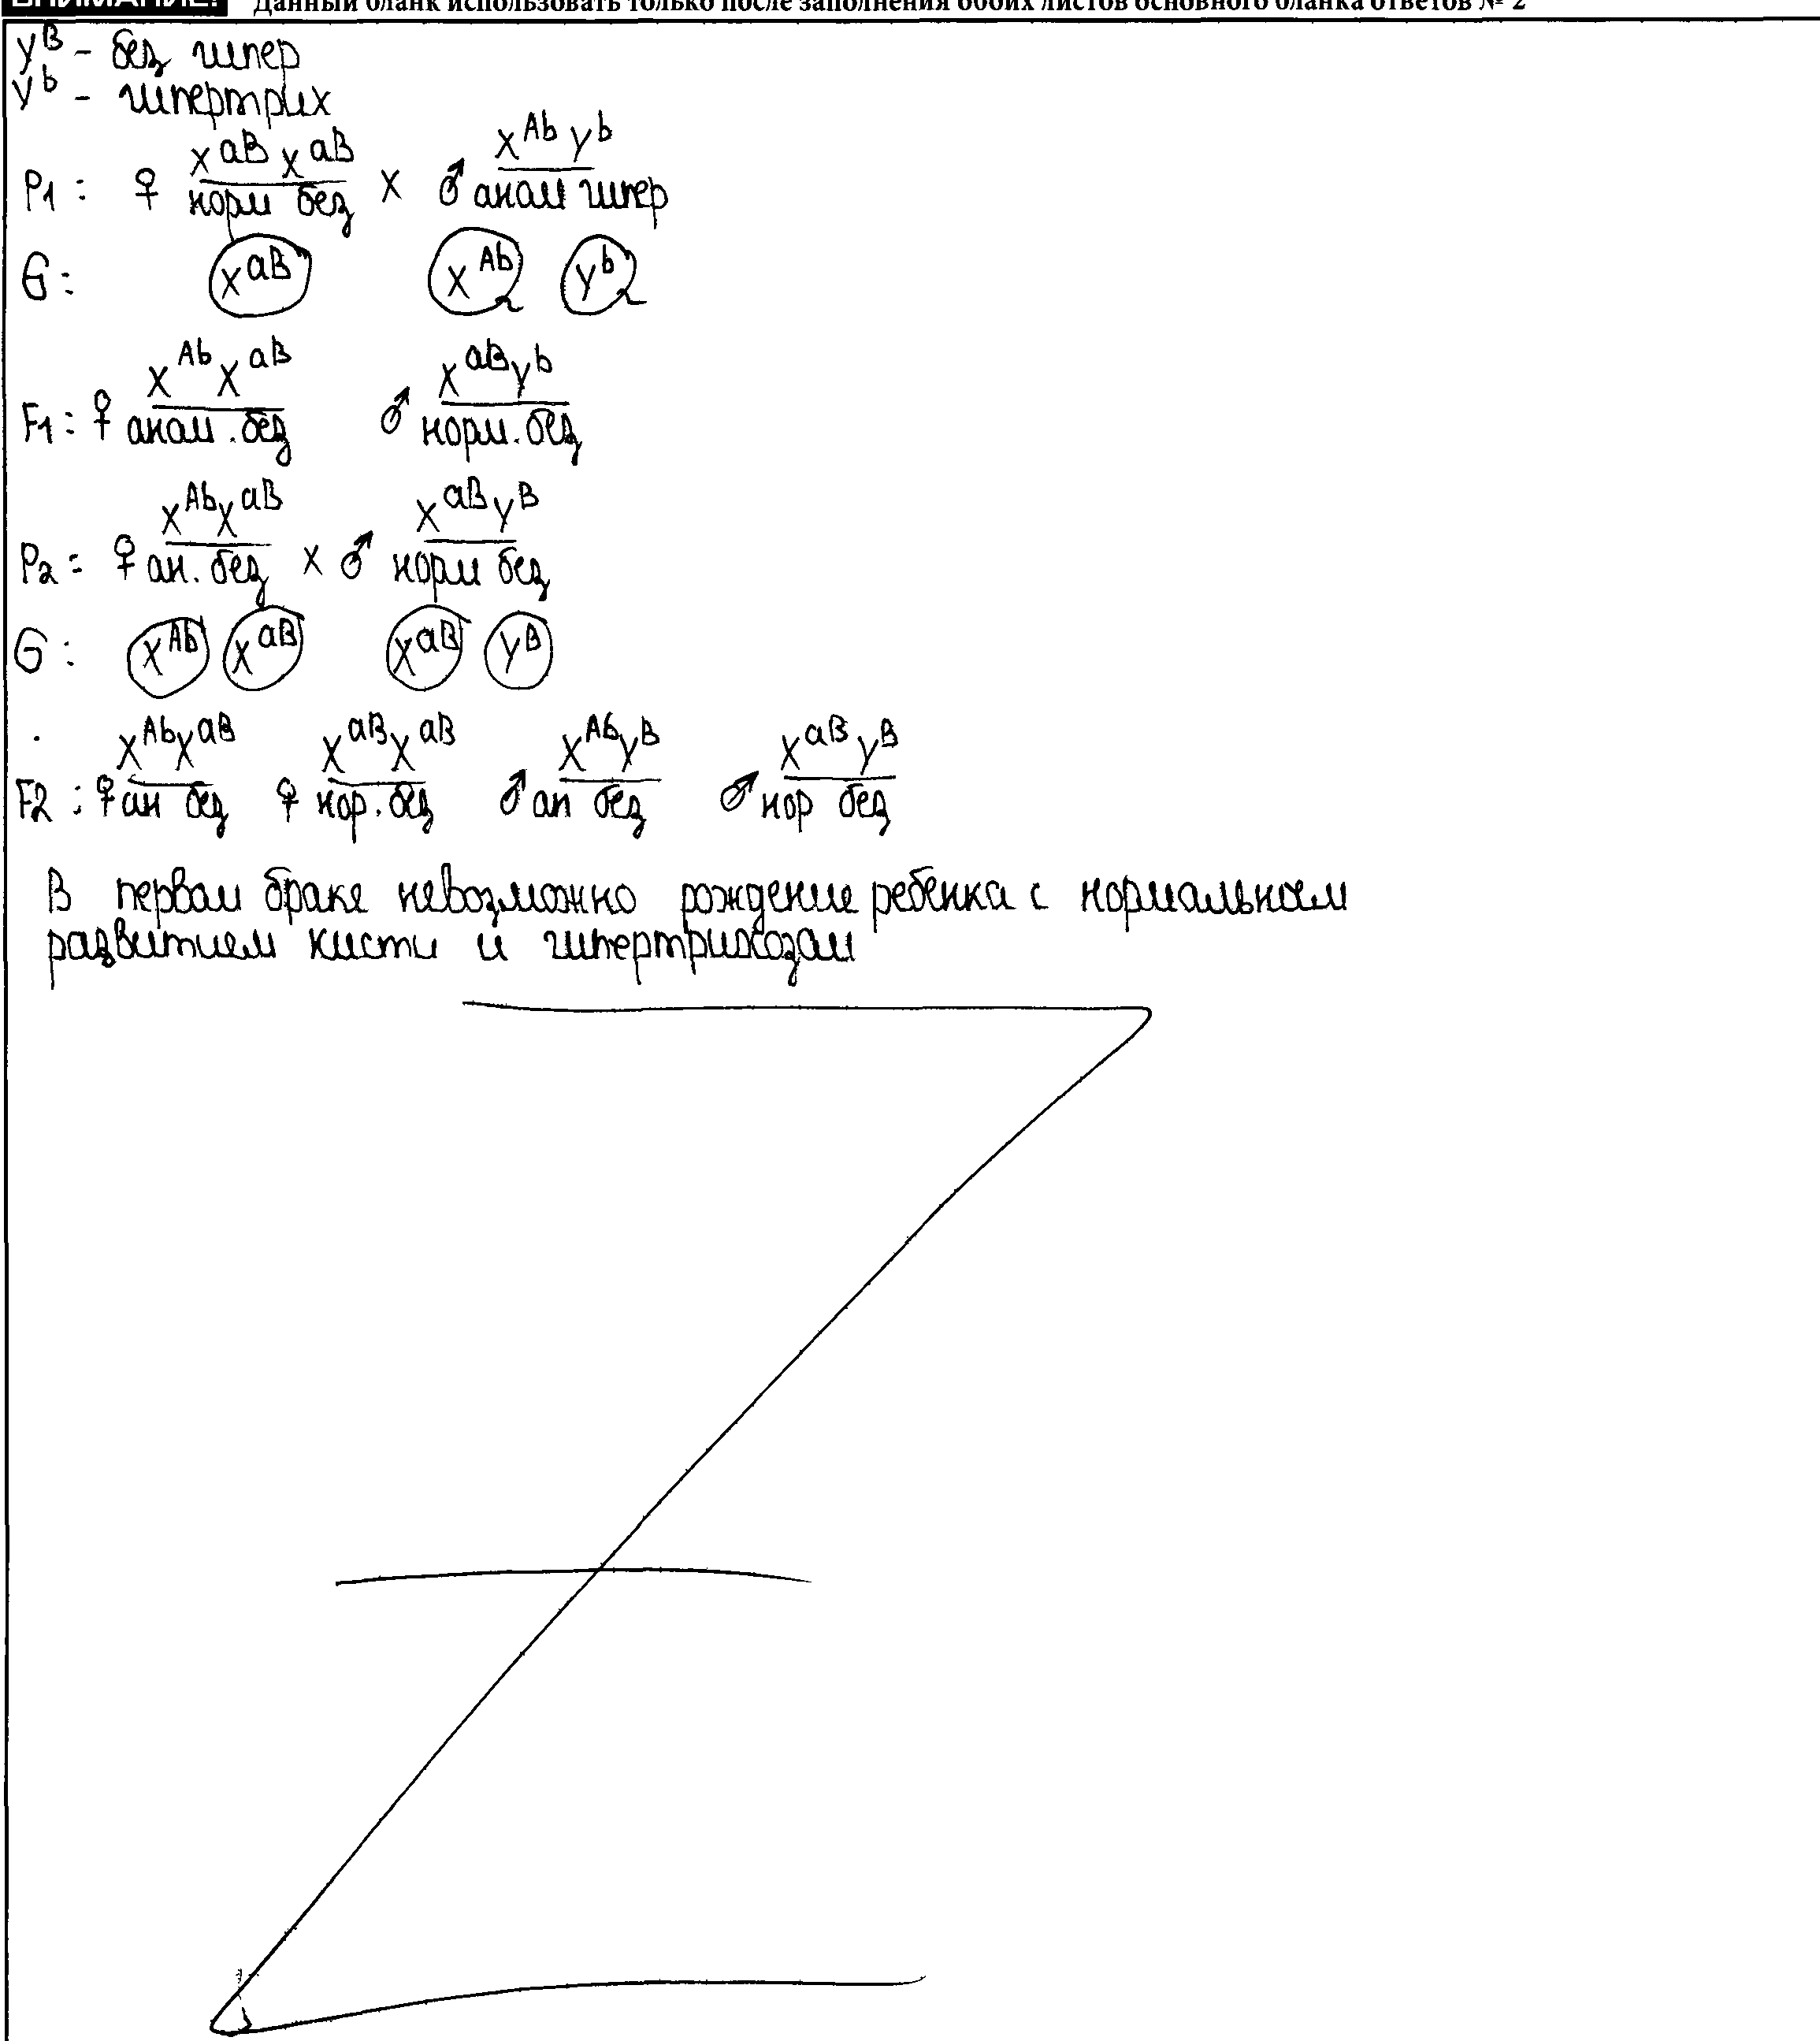 ВНИМАНИЕ! Данный бланк использовать только после заполнения обоих листов основного бланка ответов № 2
Y^B - без гипер
Y^b - гипертрих
X^aB X^aB X^Ab Y^b
P1 : ♀ норм без × ♂ анам гипер
G : X^aB X^Ab Y^b
X^Ab X^aB X^aB Y^b
F1 : ♀ анам. без ♂ норм. без
X^Ab X^aB X^aB Y^B
P2 = ♀ ан. без × ♂ норм без
G : X^Ab X^aB X^aB Y^B
X^Ab X^aB X^aB X^aB X^Ab Y^B X^aB Y^B
F2 : ♀ ан без ♀ нор. без ♂ ан без ♂ нор без
В первом браке невозможно рождение ребенка с нормальным
развитием кисти и гипертрихозам